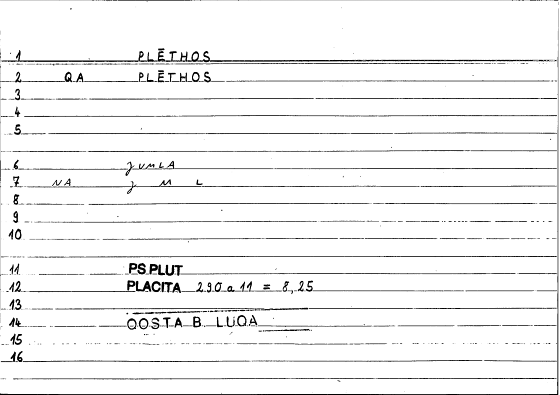 1 PLĒTHOS
2 QA PLĒTHOS
3
4
5
6 ȷUMLA
7 NA ȷ M L
8
9
10
11 PS PLUT
12 PLACITA 290 a 11 = 8,25
13
14 QOSTA B. LUQA
15
16